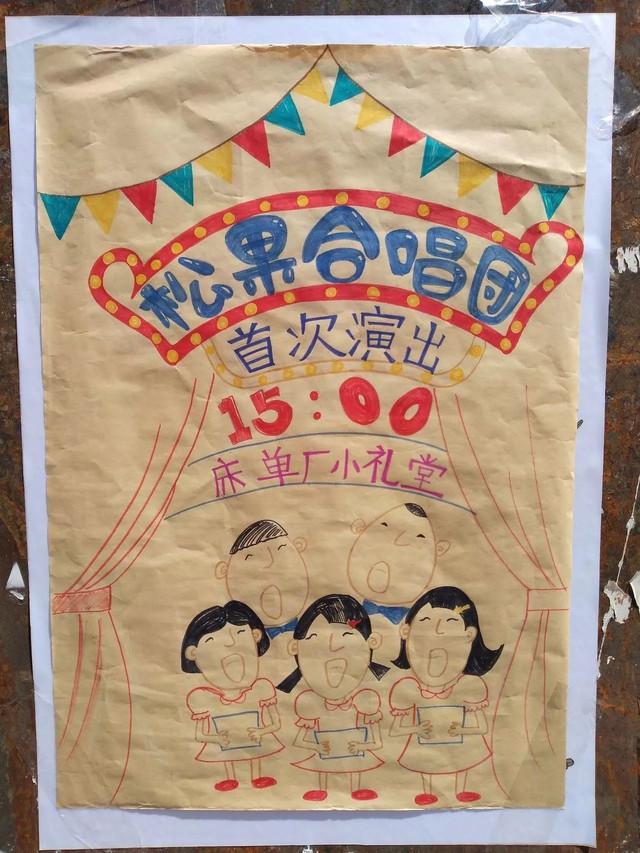 松果合唱团
首次演出
15:00
床单厂小礼堂